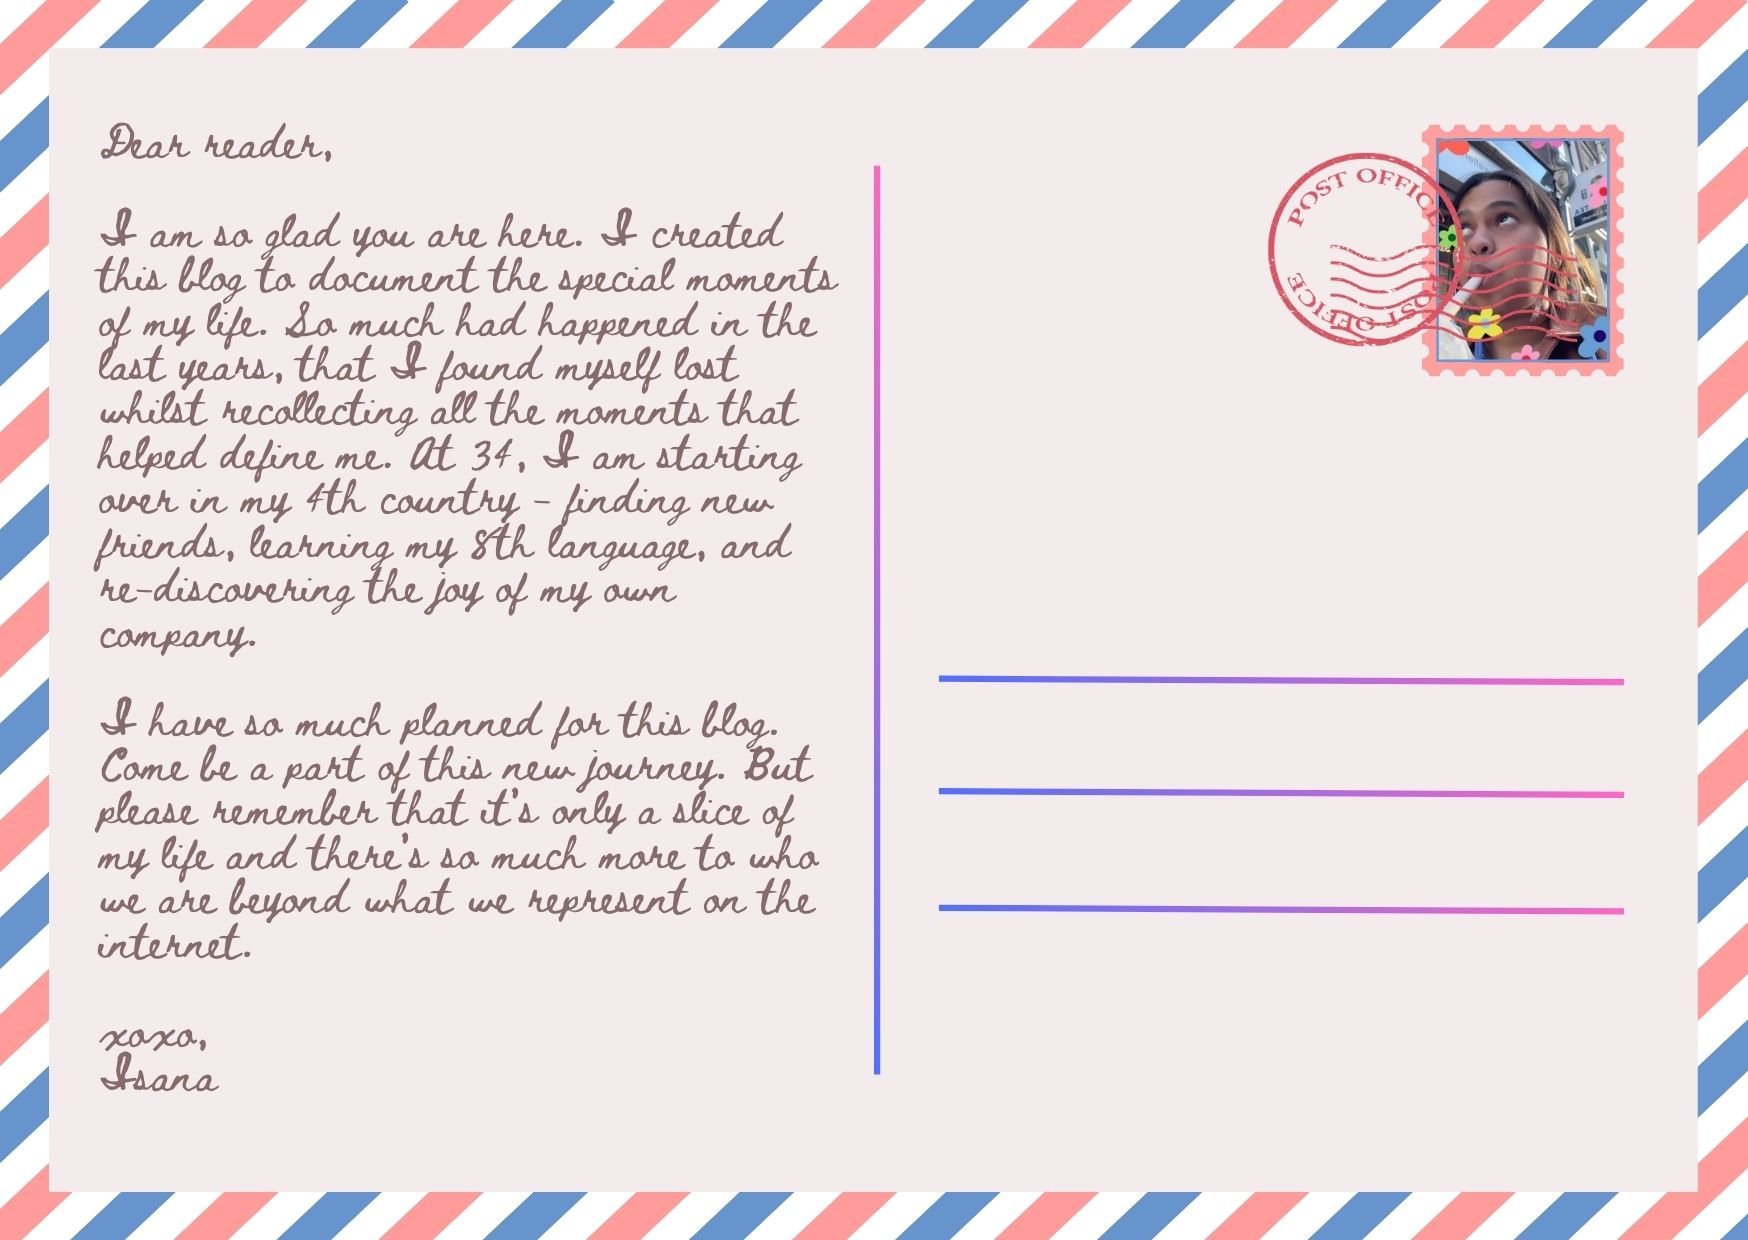 Dear reader,
I am so glad you are here. I created
this blog to document the special moments
of my life. So much had happened in the
last years, that I found myself lost
whilst recollecting all the moments that
helped define me. At 34, I am starting
over in my 4th country - finding new
friends, learning my 8th language, and
re-discovering the joy of my own
company.
I have so much planned for this blog.
Come be a part of this new journey. But
please remember that it's only a slice of
my life and there's so much more to who
we are beyond what we represent on the
internet.
xoxo,
Isana
POST OFFICE
POST OFFICE